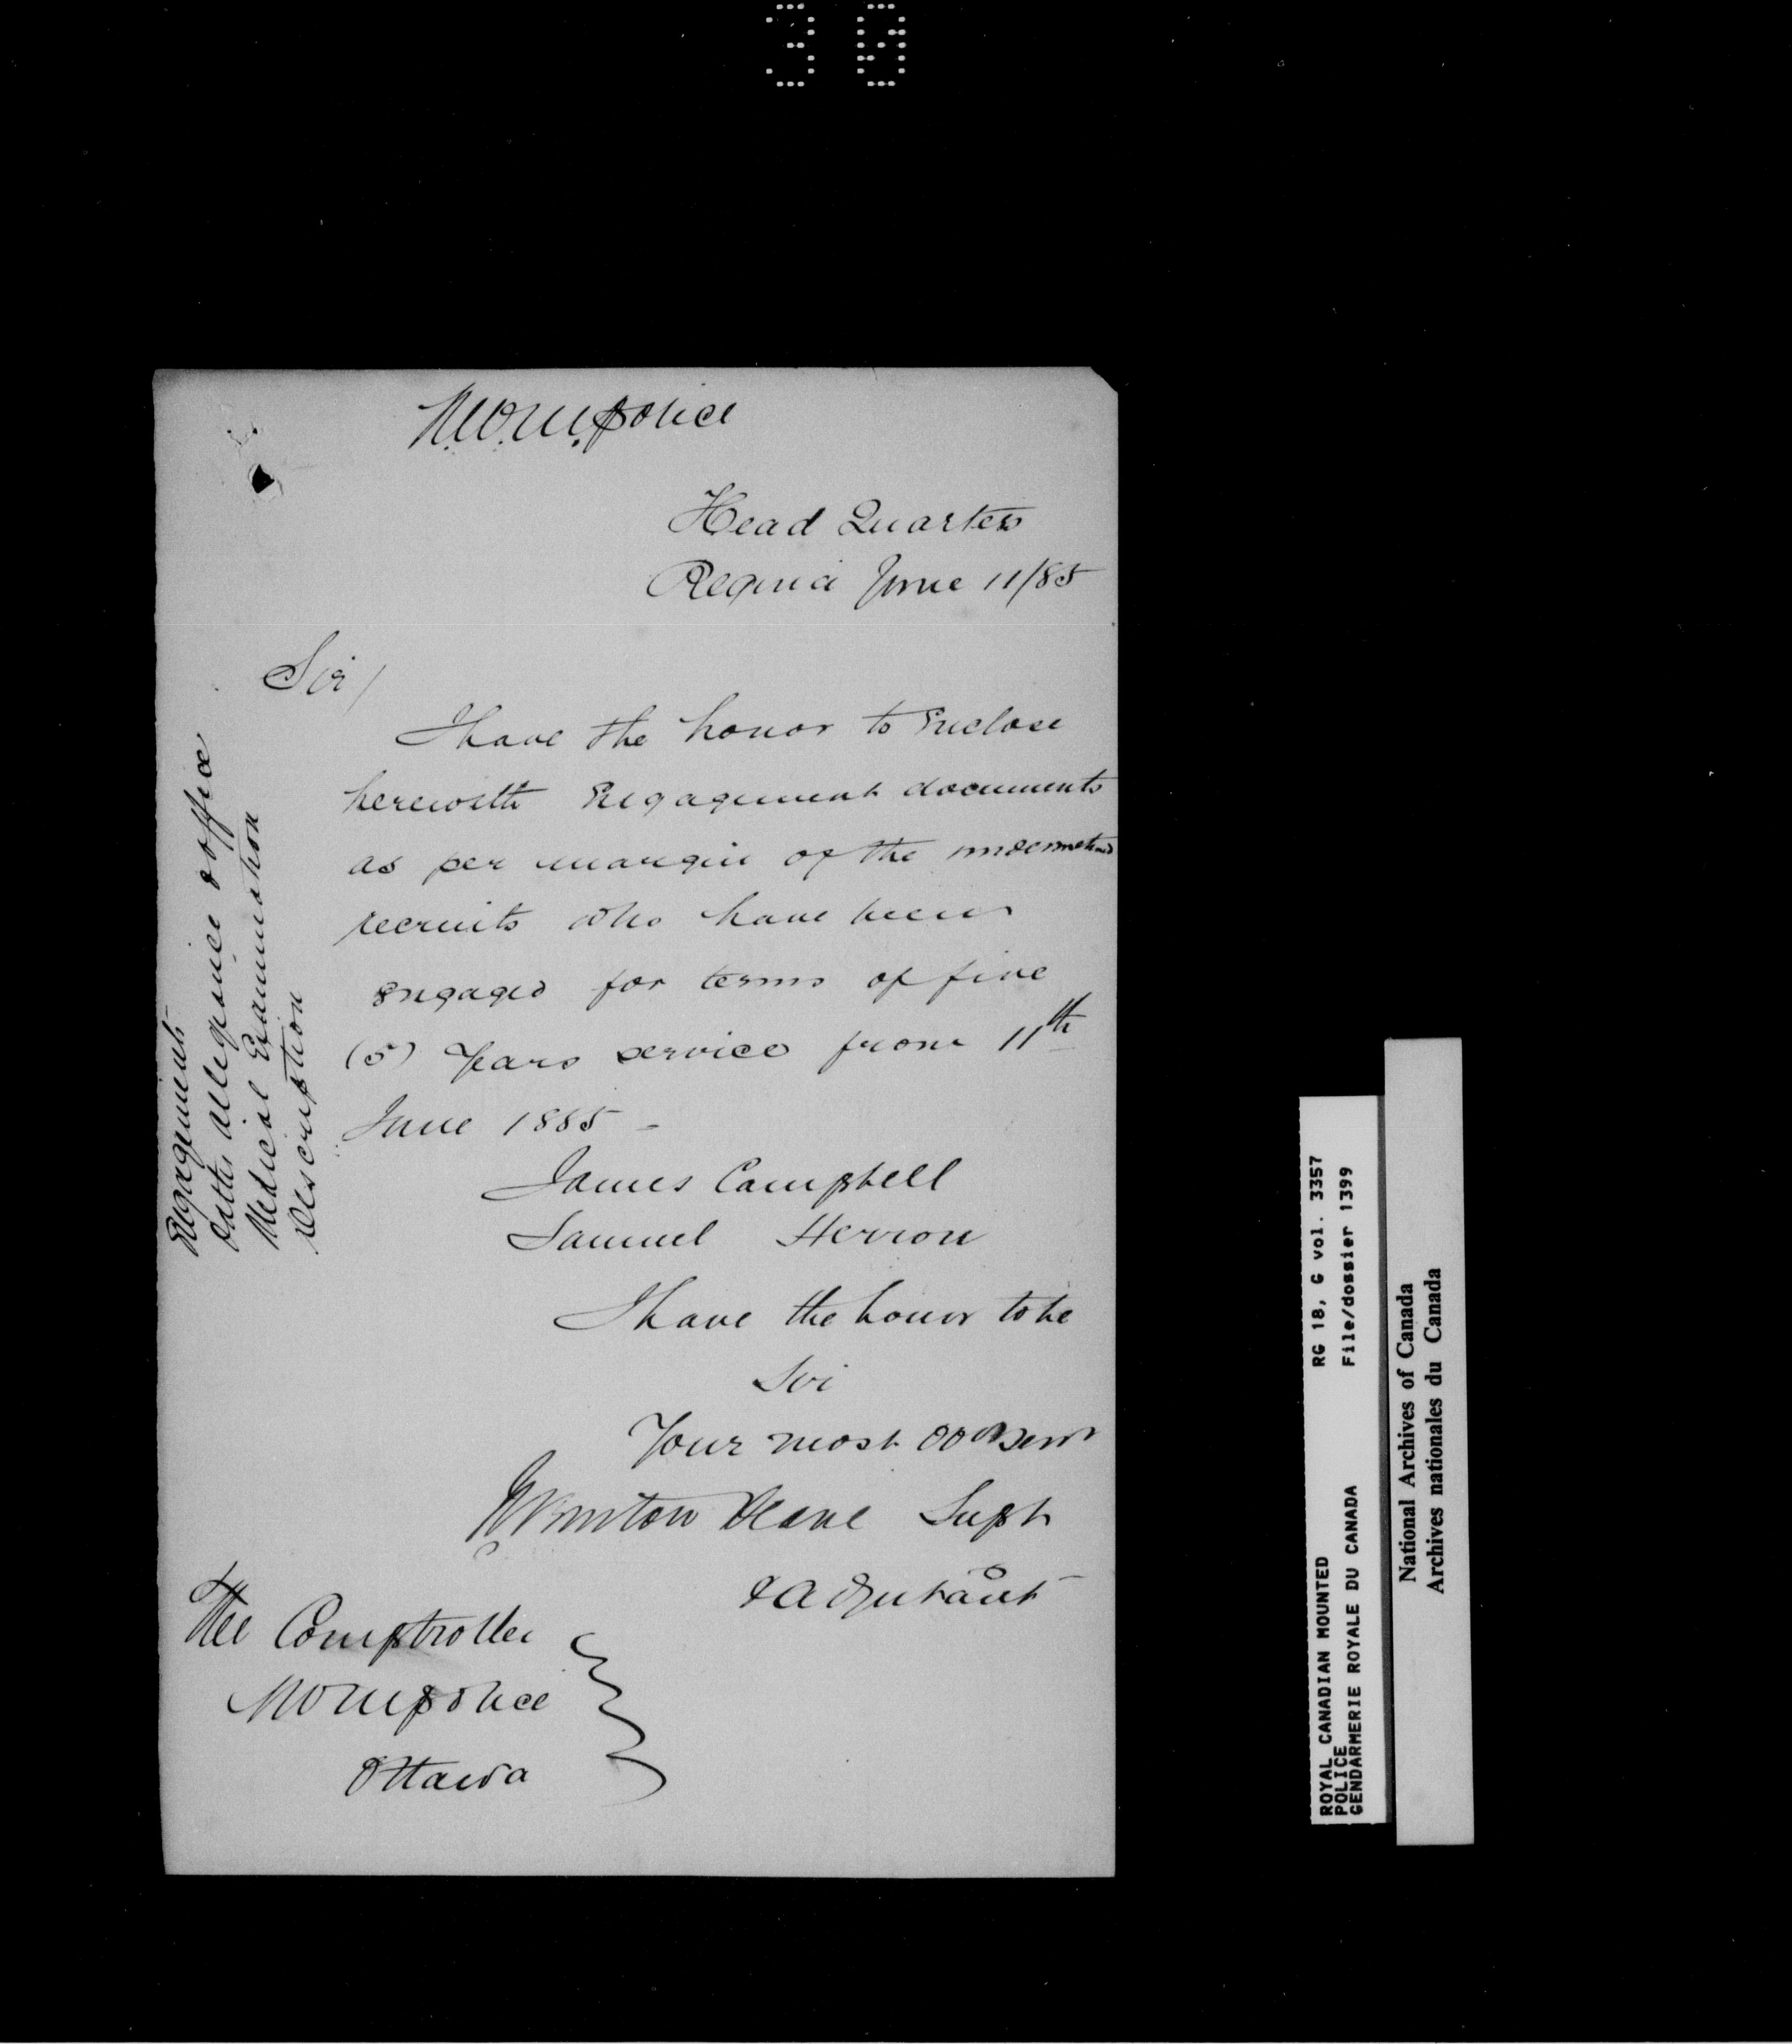 30
N.W.M. Police
Head Quarters
Regina June 11/85
Sir/
I have the honor to Enclose
herewith Engagement documents
as per margin of the
recruits who have been
engaged for terms of five
(5) Years service from 11th
June 1885 -
Engagement
Oaths allegiance & office
Medical Examination
Description
James Campbell
Samuel Herron
I have the honor to be
Sir
Your most
Deane Supt
& Adjutant
The Comptroller
NWM Police
Ottawa
ROYAL CANADIAN MOUNTED
POLICE
GENDARMERIE ROYALE DU CANADA
RG 18, G vol. 3357
File/dossier 1399
National Archives of Canada
Archives nationales du Canada